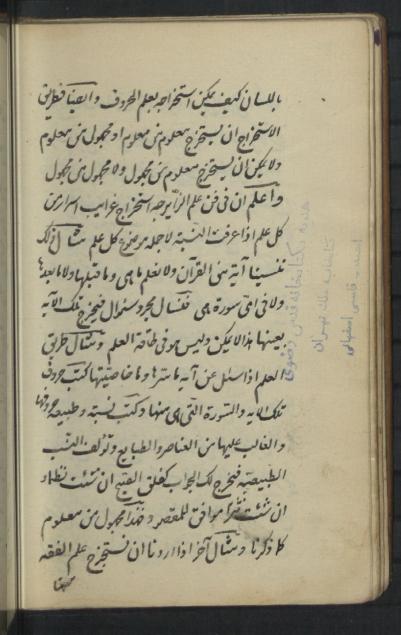 باللسان كيف يمكن استخراجه بعلم الحروف و ايضا فطريق
الاستخراج ان يستخرج معلوم من معلوم او مجهول من معلوم
ولا يمكن ان يستخرج معلوم من مجهول ولا مجهول من مجهول
واعلم ان فى فن علم الزايرجه استخراج غرايب اسرار من
كل علم اذا عرفت النسبة لاجله موضوع كل علم مثال ذلك
نسينا آية من القرآن ولا نعلم ما هى وما قبلها ولا ما بعدها
ولا فى اى سورة هى فنسال مجرد سؤال فيخرج تلك الآية
بعينها هذا لا يمكن وليس هو فى طاقة العلم ومثال طريق
العلم اذا سئل عن آية ما سرها وما خاصيتها كتب حروف
تلك الآيه والسورة التى هى منها وكتب نسبته وطبيعة حروفها
والغالب عليها من العناصر والطبايع وتؤلف النسب
الطبيعية فيخرج لك الجواب كفلق الصبح ان شئت نظما و
ان شئت نثرا موافق للمقصود وهذا مجهول من معلوم
كما ذكرنا ومثال آخر اذا اردنا ان نستخرج علم الفقه
هديه كتابخانه قدس رضوى
كتابخانه ملك تهران